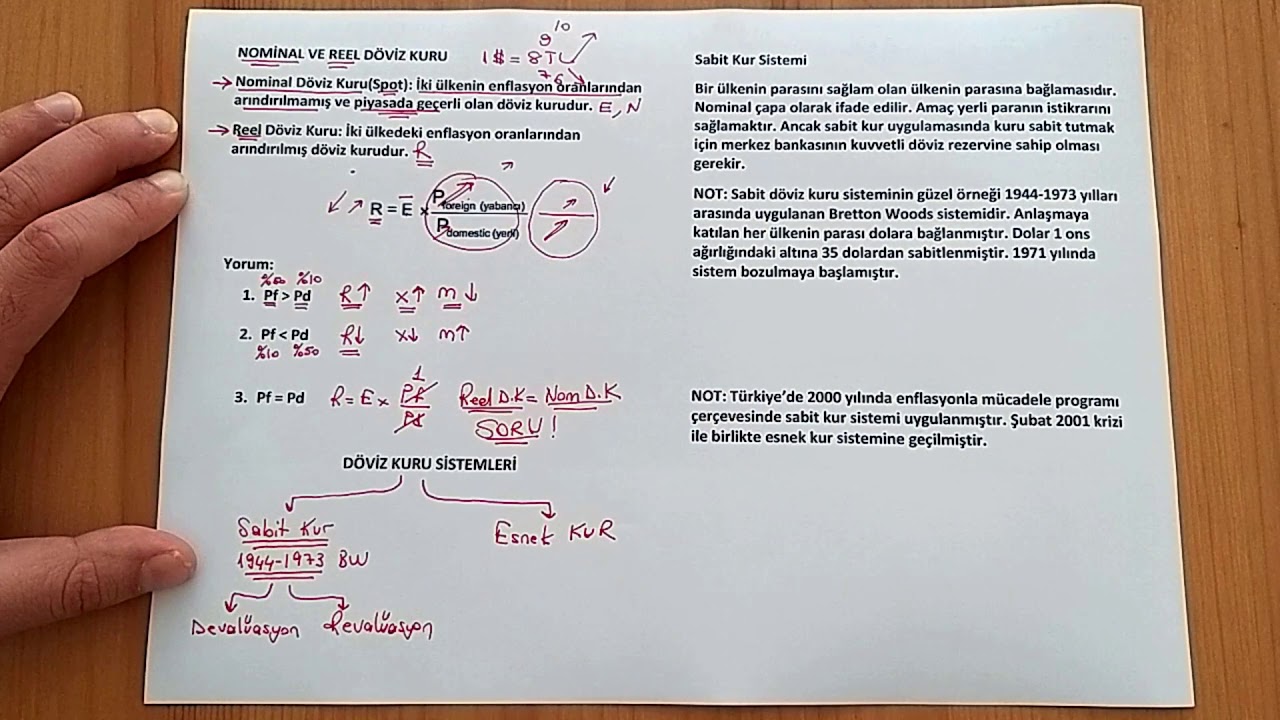 NOMİNAL VE REEL DÖVİZ KURU
1$ = 8TL
9 10
7 6
→ Nominal Döviz Kuru(Spot): İki ülkenin enflasyon oranlarından
arındırılmamış ve piyasada geçerli olan döviz kurudur. E, N
→ Reel Döviz Kuru: İki ülkedeki enflasyon oranlarından
arındırılmış döviz kurudur. R
R = E × Pforeign (yabancı)
Pdomestic (yerli)
Yorum:
%50 %10
1. Pf > Pd R↑ x↑ m↓
2. Pf < Pd R↓ x↓ m↑
%10 %50
1
3. Pf = Pd R = E × Pf Reel D.K = Nom D.K
Pd SORU!
DÖVİZ KURU SİSTEMLERİ
Sabit Kur Esnek KUR
1944-1973 BW
Devalüasyon Revalüasyon
Sabit Kur Sistemi
Bir ülkenin parasını sağlam olan ülkenin parasına bağlamasıdır.
Nominal çapa olarak ifade edilir. Amaç yerli paranın istikrarını
sağlamaktır. Ancak sabit kur uygulamasında kuru sabit tutmak
için merkez bankasının kuvvetli döviz rezervine sahip olması
gerekir.
NOT: Sabit döviz kuru sisteminin güzel örneği 1944-1973 yılları
arasında uygulanan Bretton Woods sistemidir. Anlaşmaya
katılan her ülkenin parası dolara bağlanmıştır. Dolar 1 ons
ağırlığındaki altına 35 dolardan sabitlenmiştir. 1971 yılında
sistem bozulmaya başlamıştır.
NOT: Türkiye'de 2000 yılında enflasyonla mücadele programı
çerçevesinde sabit kur sistemi uygulanmıştır. Şubat 2001 krizi
ile birlikte esnek kur sistemine geçilmiştir.